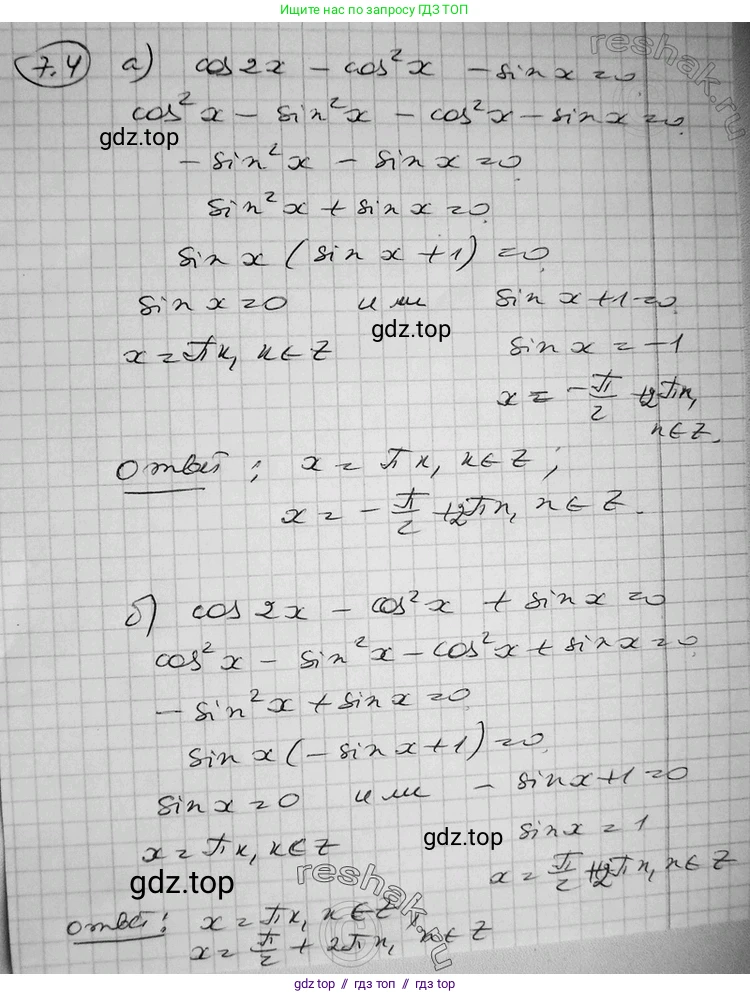 Ищите нас по запросу ГДЗ ТОП
7.4 а) cos 2x - cos²x - sin x = 0
reshak.ru
cos²x - sin²x - cos²x - sin x = 0
gdz.top
- sin²x - sin x = 0
sin²x + sin x = 0
sin x (sin x + 1) = 0
sin x = 0 или sin x + 1 = 0
gdz.top
x = πк, к ∈ Z sin x = -1
x = -π/2 + 2πn,
n ∈ Z.
Ответ: x = πк, к ∈ Z;
x = -π/2 + 2πn, n ∈ Z.
б) cos 2x - cos²x + sin x = 0
cos²x - sin²x - cos²x + sin x = 0
- sin²x + sin x = 0
sin x (- sin x + 1) = 0
sin x = 0 или - sin x + 1 = 0
sin x = 1
gdz.top
x = πк, к ∈ Z x = π/2 + 2πn, n ∈ Z
gdz.top
reshak.ru
Ответ: x = πк, к ∈ Z
x = π/2 + 2πn, n ∈ Z
gdz top // гдз топ // gdz top